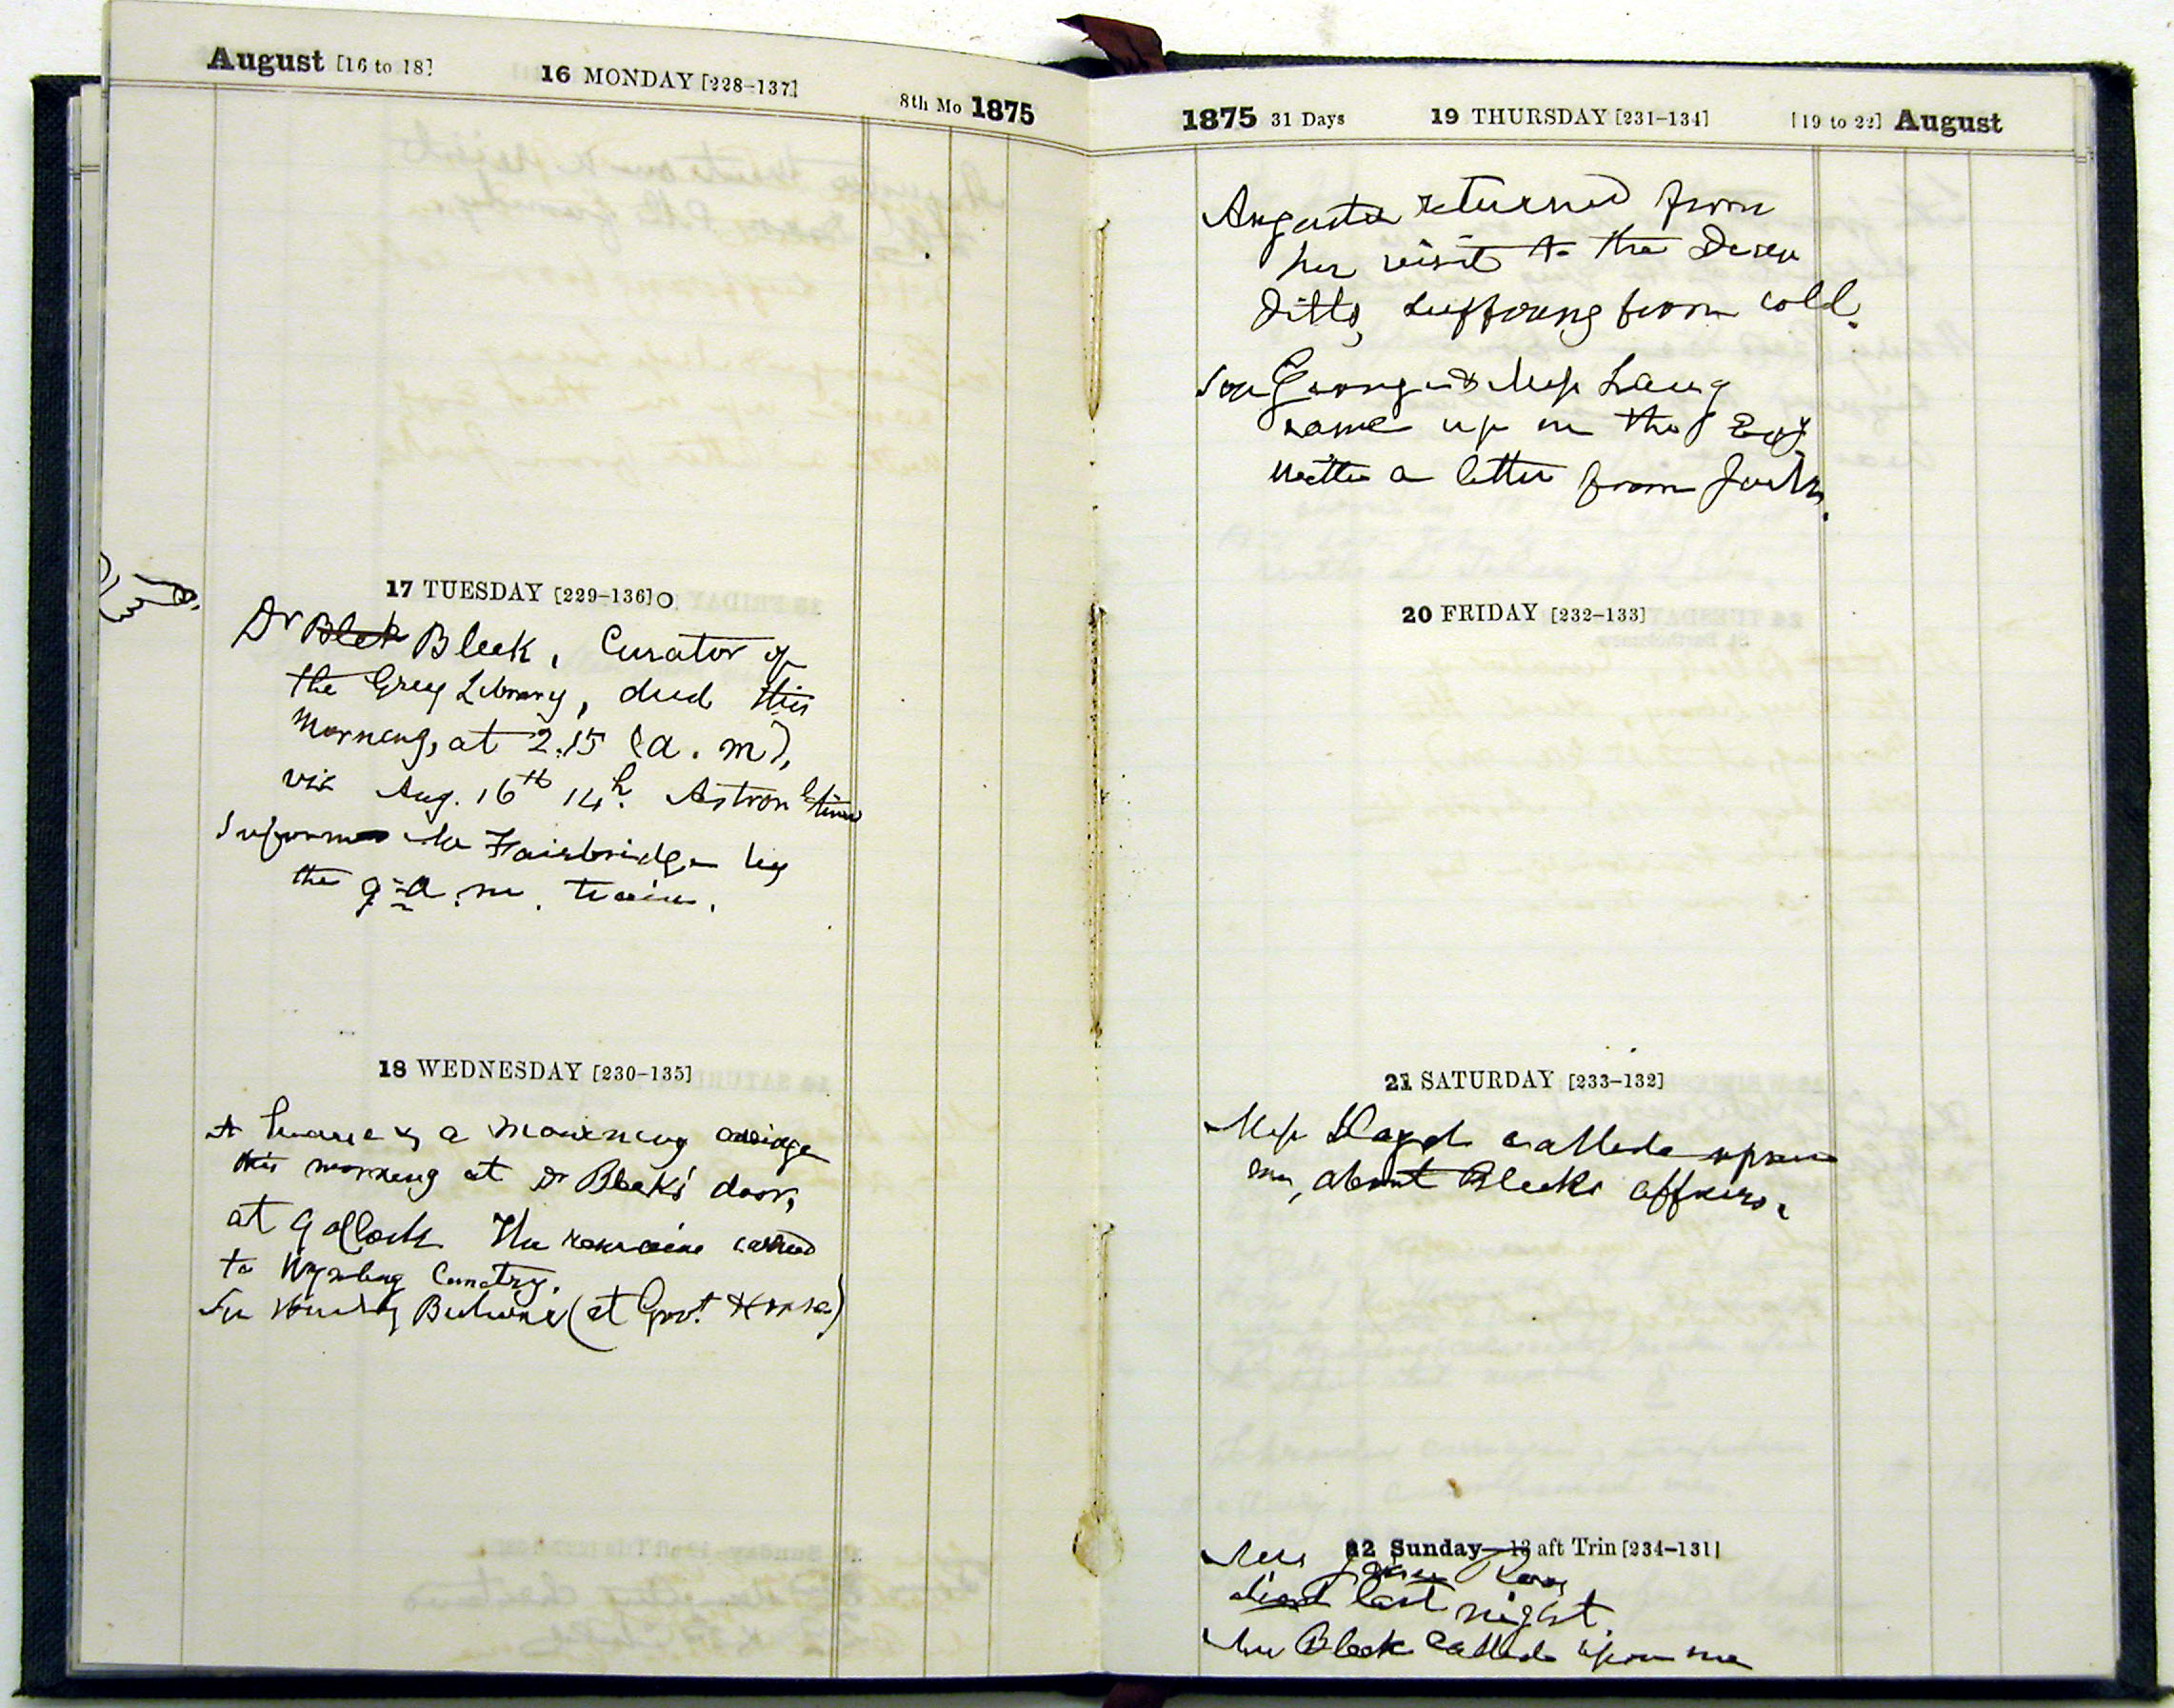 August [16 to 18] 16 MONDAY [228–137] 8th Mo 1875
17 TUESDAY [229–136]
Dr Blek Bleek, Curator of
the Grey Library, died this
Morning, at 2.15 (a.m),
viz Aug. 16th 14h. Astronl time
Informed Mr Fairbridge by
the 9 a.m. train.
18 WEDNESDAY [230–135]
A hearse & a mourning carriage
this morning at Dr Bleek's door,
at 9 o'Clock. The remains carried
to Wynberg Cemetry.
Sir Henry Bulwer (at Govt. House)
1875 31 Days 19 THURSDAY [231–134] [19 to 22] August
Augusta returned from
her visit to the
Ditto, suffering from cold.
Son George & Miss Lang
came up in the
with a letter from
20 FRIDAY [232–133]
21 SATURDAY [233–132]
Miss Lloyd called upon
me, about Bleeks affairs.
22 Sunday—13 aft Trin [234–131]
Mrs Ross
died last night.
Mrs Bleek called upon me